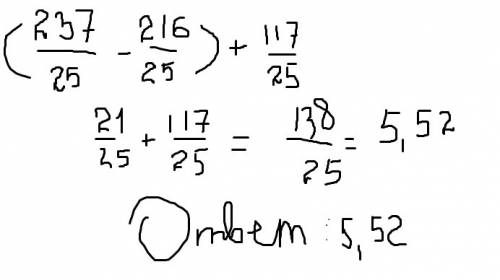 (237/25 - 216/25) + 117/25
21/25 + 117/25 = 138/25 = 5,52
Ответ : 5,52